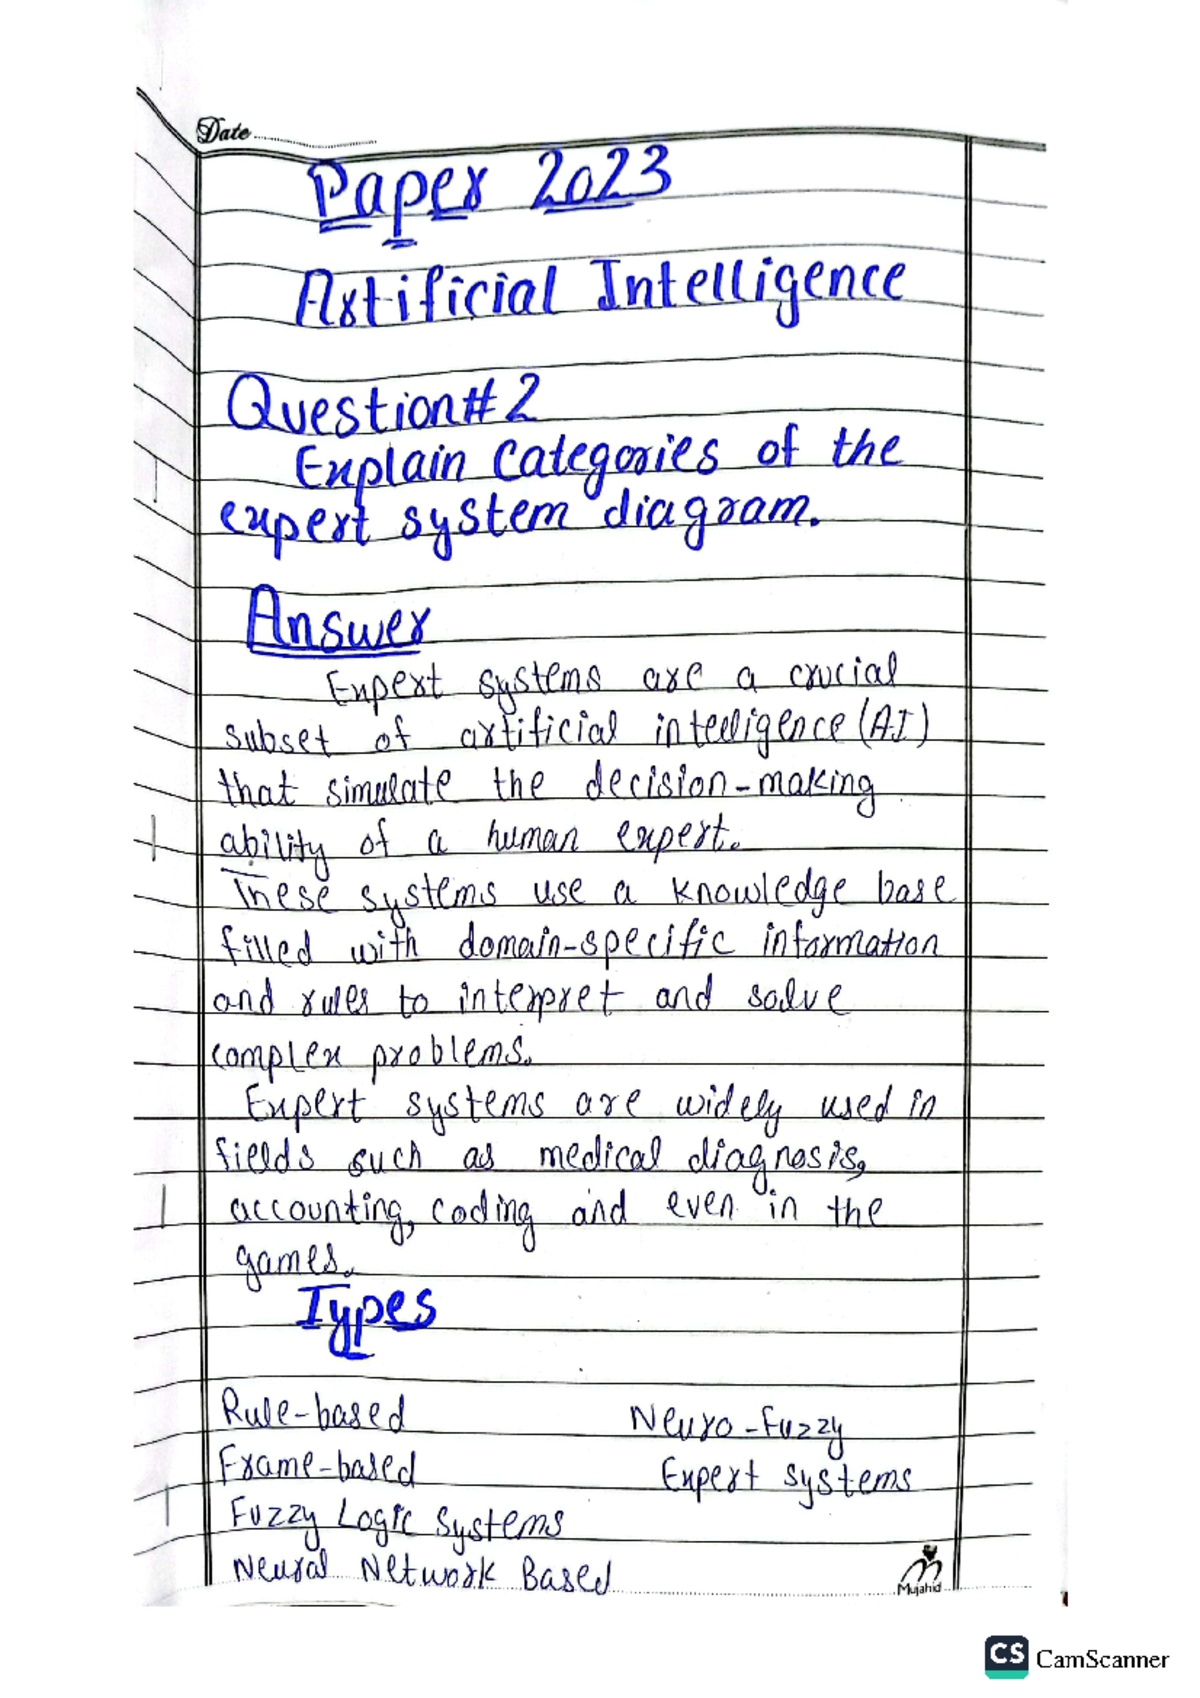 Date
Paper 2023
Artificial Intelligence
Question#2
Explain Categories of the
expert system diagram.
Answer
Expert systems are a crucial
subset of artificial intelligence (AI)
that simulate the decision-making
ability of a human expert.
These systems use a knowledge base
filled with domain-specific information
and rules to interpret and solve
complex problems.
Expert systems are widely used in
fields such as medical diagnosis,
accounting, coding and even in the
games.
Types
Rule-based
Frame-based
Fuzzy Logic Systems
Neural Network Based
Neuro-Fuzzy
Expert systems
Mujahid
CS CamScanner